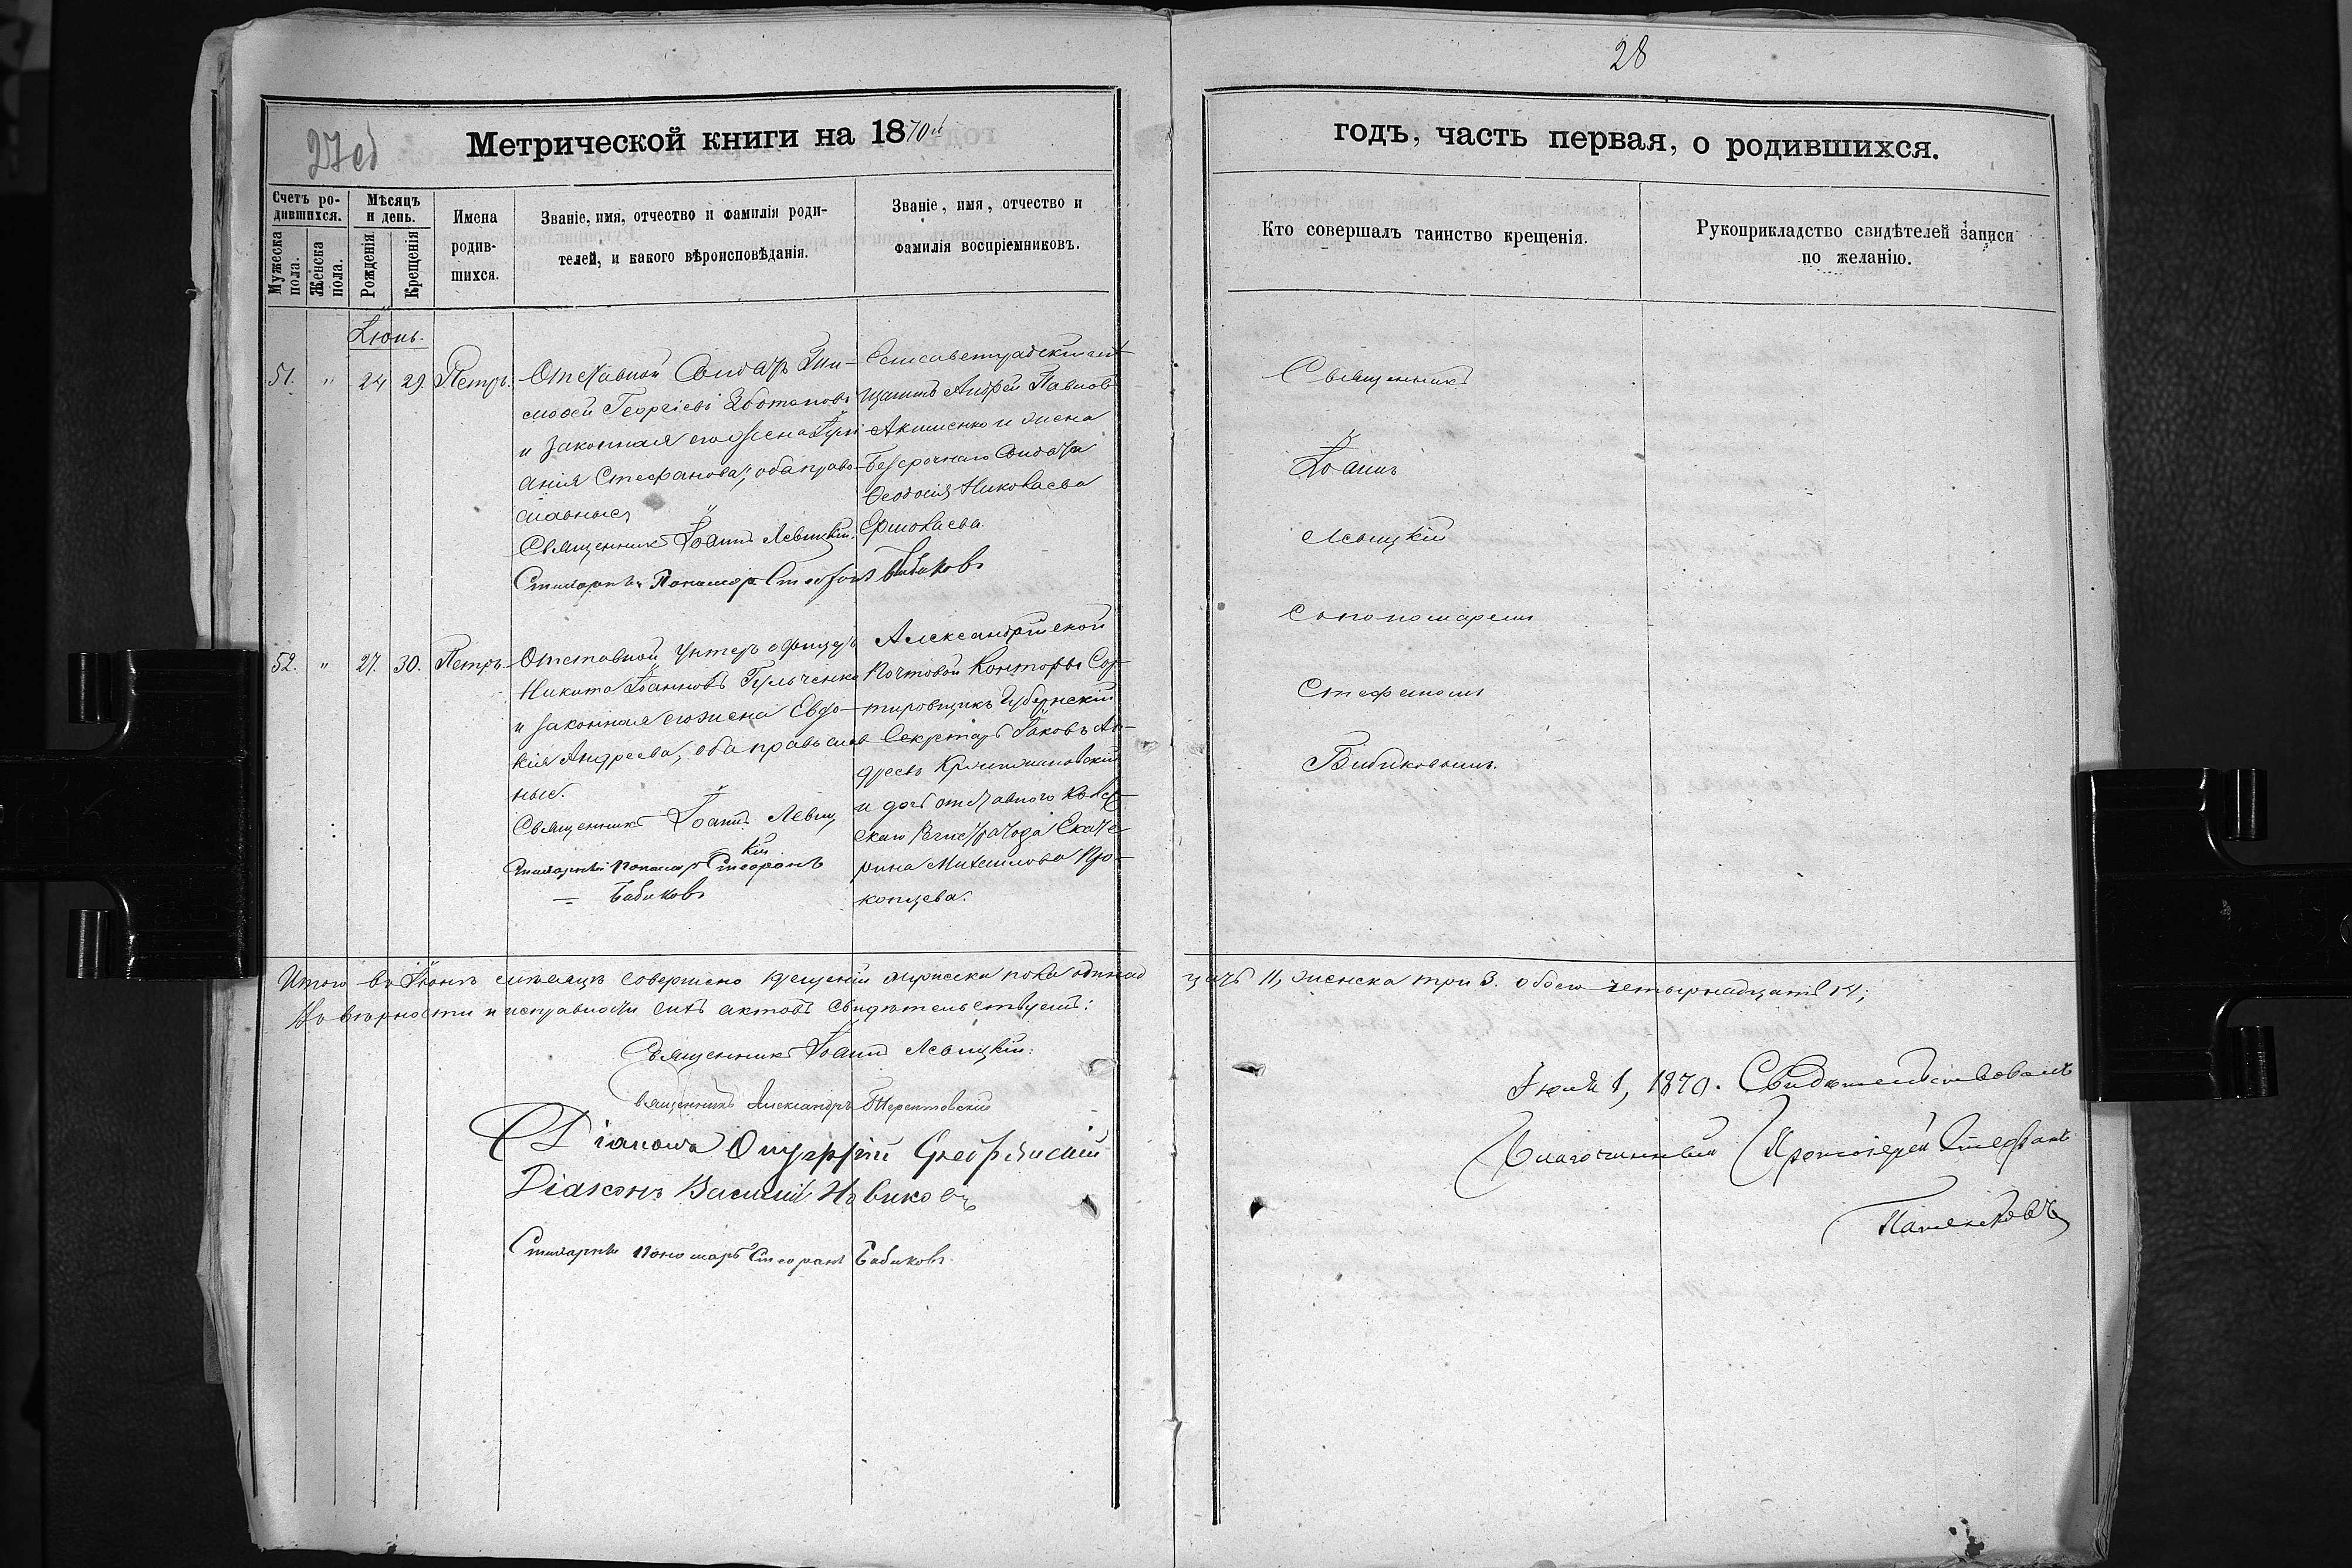 28
27 об
Метрической книги на 1870й
годъ, часть первая, о родившихся.
Счетъ родившихся.
Мужеска пола.
Женска пола.
Мѣсяцъ и день.
Рожденія.
Крещенія
Имена родившихся.
Званіе, имя, отчество и фамилія роди-
телей, и какого вѣроисповѣданія.
Званіе, имя, отчество и
фамилія воспріемниковъ.
Кто совершалъ таинство крещенія.
Рукоприкладство свидѣтелей записи
по желанію.
Іюнь.
51. " 24 29. Петръ.
Отставной Солдатъ Ти-
моѳей Георгіевъ
и законная его жена
анія Стефанова, оба право-
славные
Священникъ Іоаннъ Левицкій.
Стихарный Пономарь Стефанъ Бабиковъ
Елисаветградскій
мѣщанинъ Андрей Павловъ
Акименко и жена
Безсрочнаго Солдата
Ѳеодосія Николаева
Ермолаева.
Священникъ
Іоаннъ
Левицкій
съ пономаремъ
Стефаномъ
Бибиковымъ.
52. " 27. 30. Петръ
Отставной Унтеръ офицеръ
Никита Іоанновъ Гульченко
и законная его жена Евдо-
кія Андреева, оба православ
ные.
Священникъ Іоаннъ Левиц
кій
Стихарный Пономарь Стефанъ
Бабиковъ
Александрійской
Почтовой Конторы Сор-
тировщикъ Губернскій
Секретарь Іаковъ Ан-
дреевъ
и дочь отставного Коллеж-
скаго Регистратора Екате-
рина Михаилова Про-
копцева.
Итого въ Іюнѣ мѣсяцѣ совершено крещеній мужеска пола одинад
цать 11, женска три 3. обоего четырнадцать 14;
Въ вѣрности и исправности сихъ актовъ свидѣтельствуемъ:
Священникъ Іоаннъ Левицкій:
Священникъ Александръ
Діаконъ Онуфрій
Діаконъ Василій Новиковъ
Стихарный Пономарь Стефанъ Бабиковъ.
Іюля 1, 1870. Свидѣтельствовалъ
Благочинный Протоіерей Стефанъ